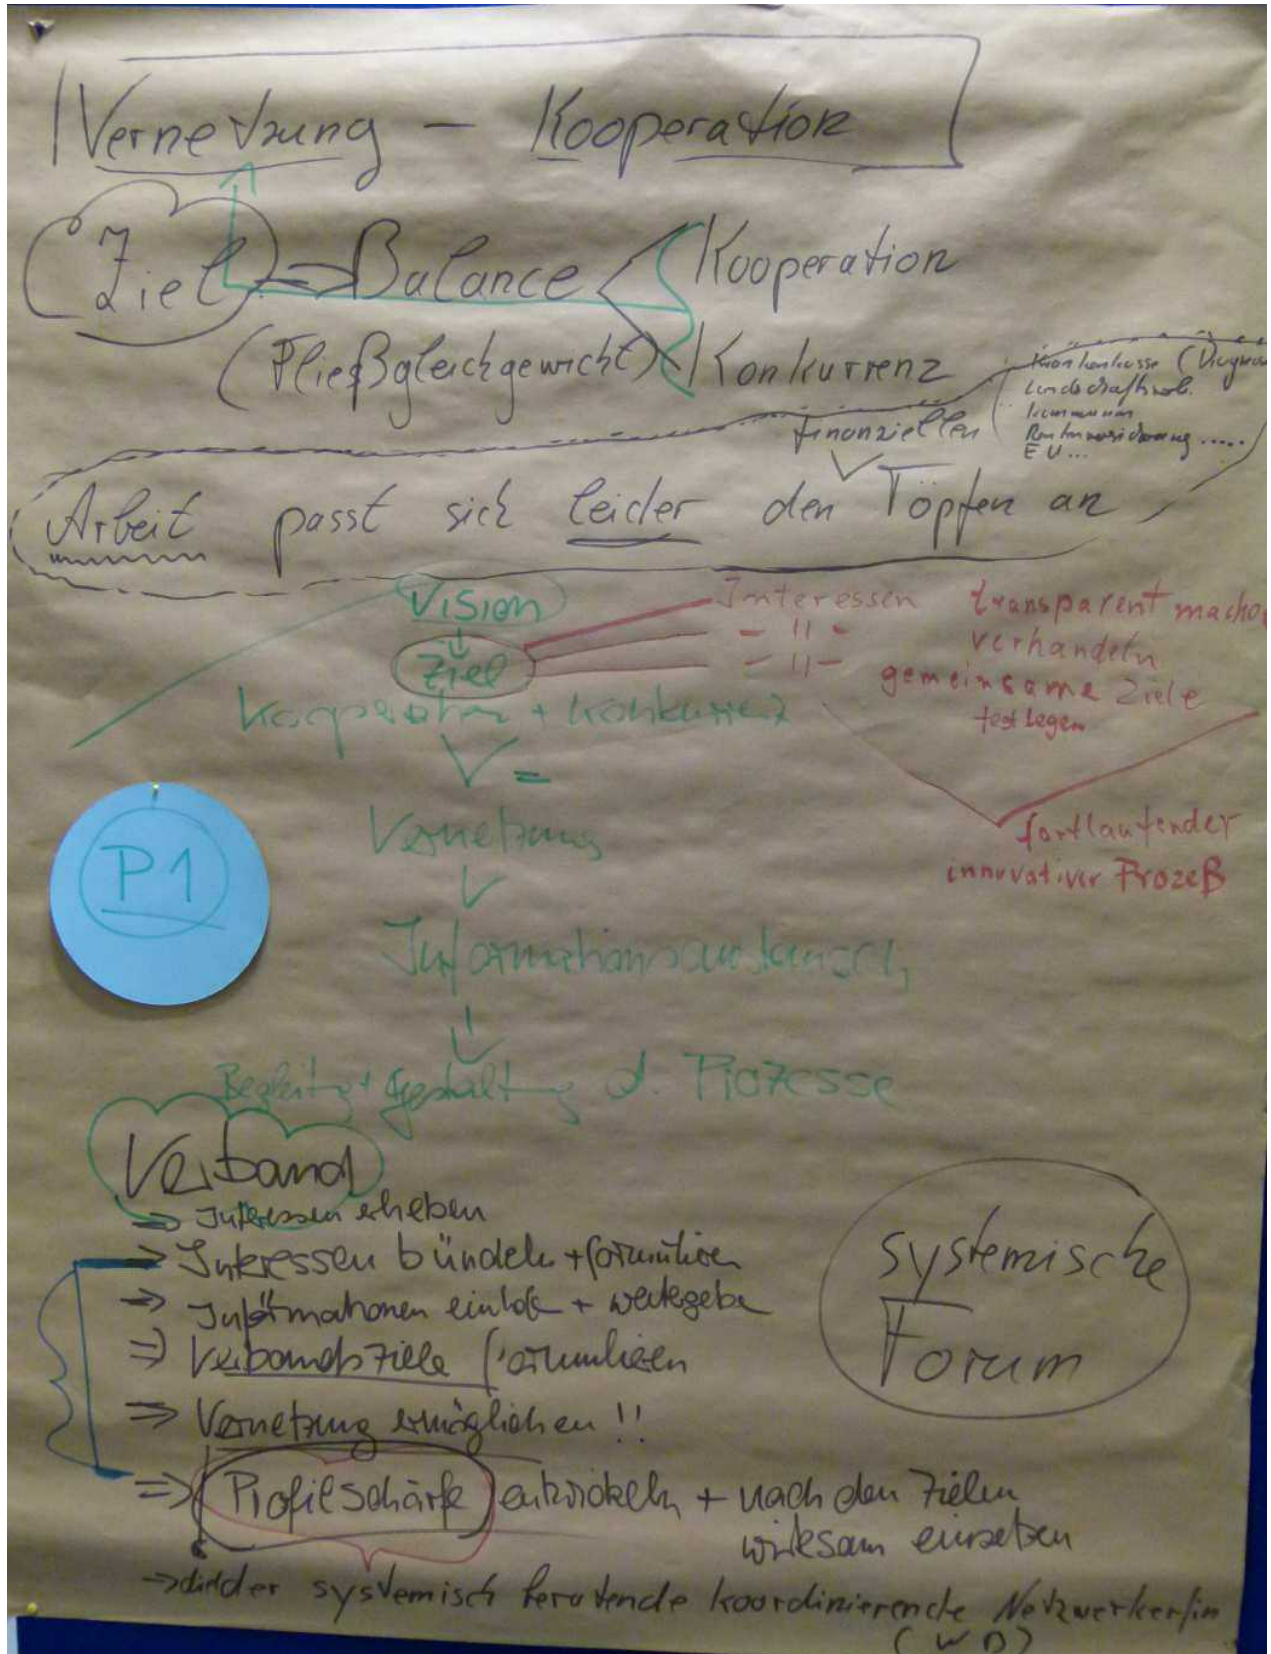 Vernetzung – Kooperation
Ziel ⇒ Balance < Kooperation
(Fließgleichgewicht) Konkurrenz
Krankenkasse (Diagnos
Landschaftsverb.
Kommunen
Rentenversicherung .....
EU...
finanziellen
Arbeit passt sich leider den Töpfen an
Vision
Ziel
Interessen
- 11 -
- 11 -
transparent mache
verhandeln
gemeinsame Ziele
festlegen
Kooperation + Konkurrenz
=
Vernetzung
P1
fortlaufender
innovativer Prozeß
Informationsaustausch
Begleitg + Gestaltung d. Prozesse
Verband
⇒ Interessen erheben
⇒ Interessen bündeln + formulieren
⇒ Informationen einhole + weitergebe
⇒ Verbandsziele formulieren
⇒ Vernetzung ermöglichen !!
⇒ Profilschärfe entwickeln + nach den Zielen
wirksam einsetzen
systemische
Forum
→ die/der systemisch beratende koordinierende Netzwerker/in
(WB)